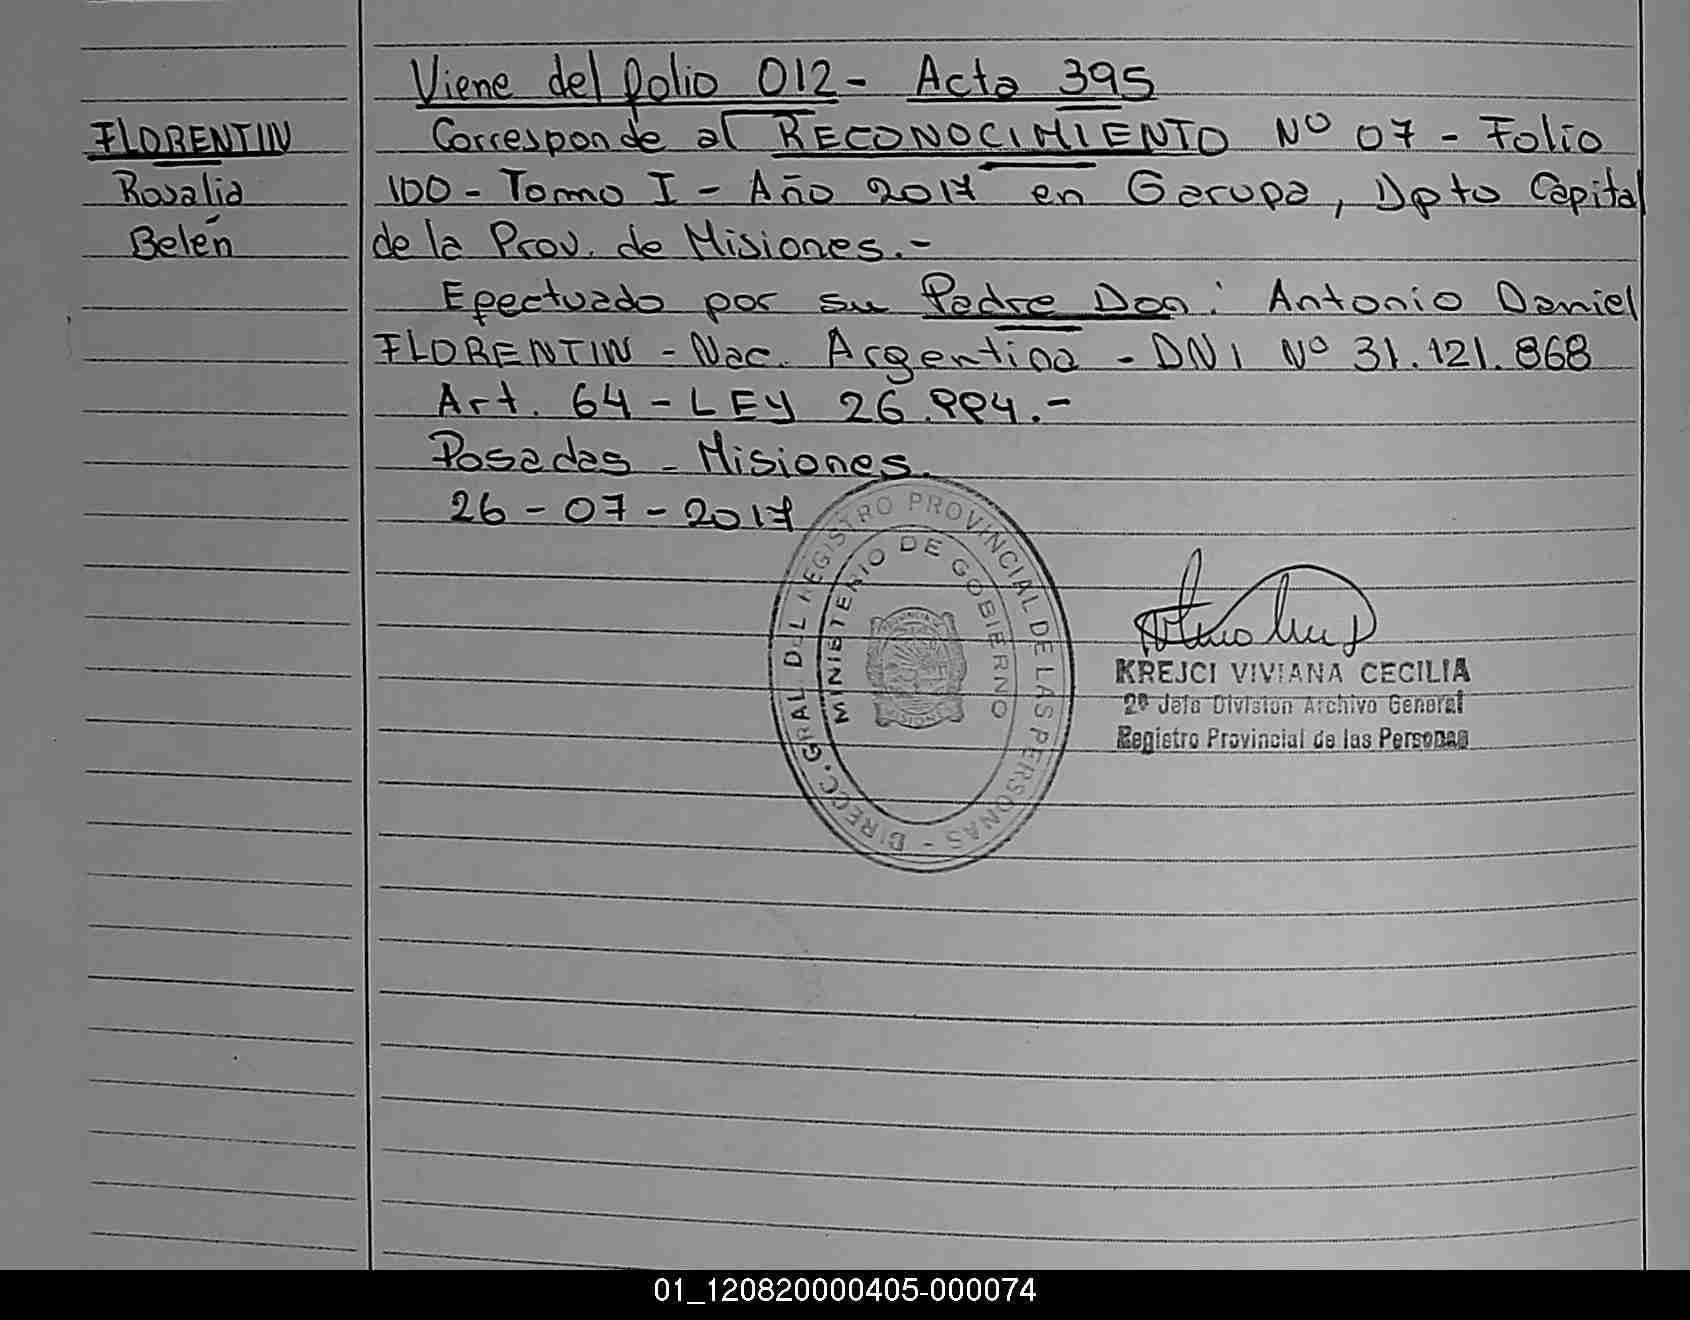 Viene del folio 012 - Acta 395
FLORENTIN
Rosalia
Belén
Corresponde al RECONOCIMIENTO Nº 07 - Folio
100 - Tomo I - Año 2017 en Garupa, Dpto Capital
de la Prov. de Misiones.-
Efectuado por su Padre Don: Antonio Daniel
FLORENTIN - Nac. Argentina - DNI Nº 31.121.868
Art. 64 - LEY 26.994.-
Posadas - Misiones.
26 - 07 - 2017
DIRECC. GRAL. DEL REGISTRO PROVINCIAL DE LAS PERSONAS -
MINISTERIO DE GOBIERNO
MISIONES
KREJCI VIVIANA CECILIA
2º Jefa División Archivo General
Registro Provincial de las Personas
01_120820000405-000074